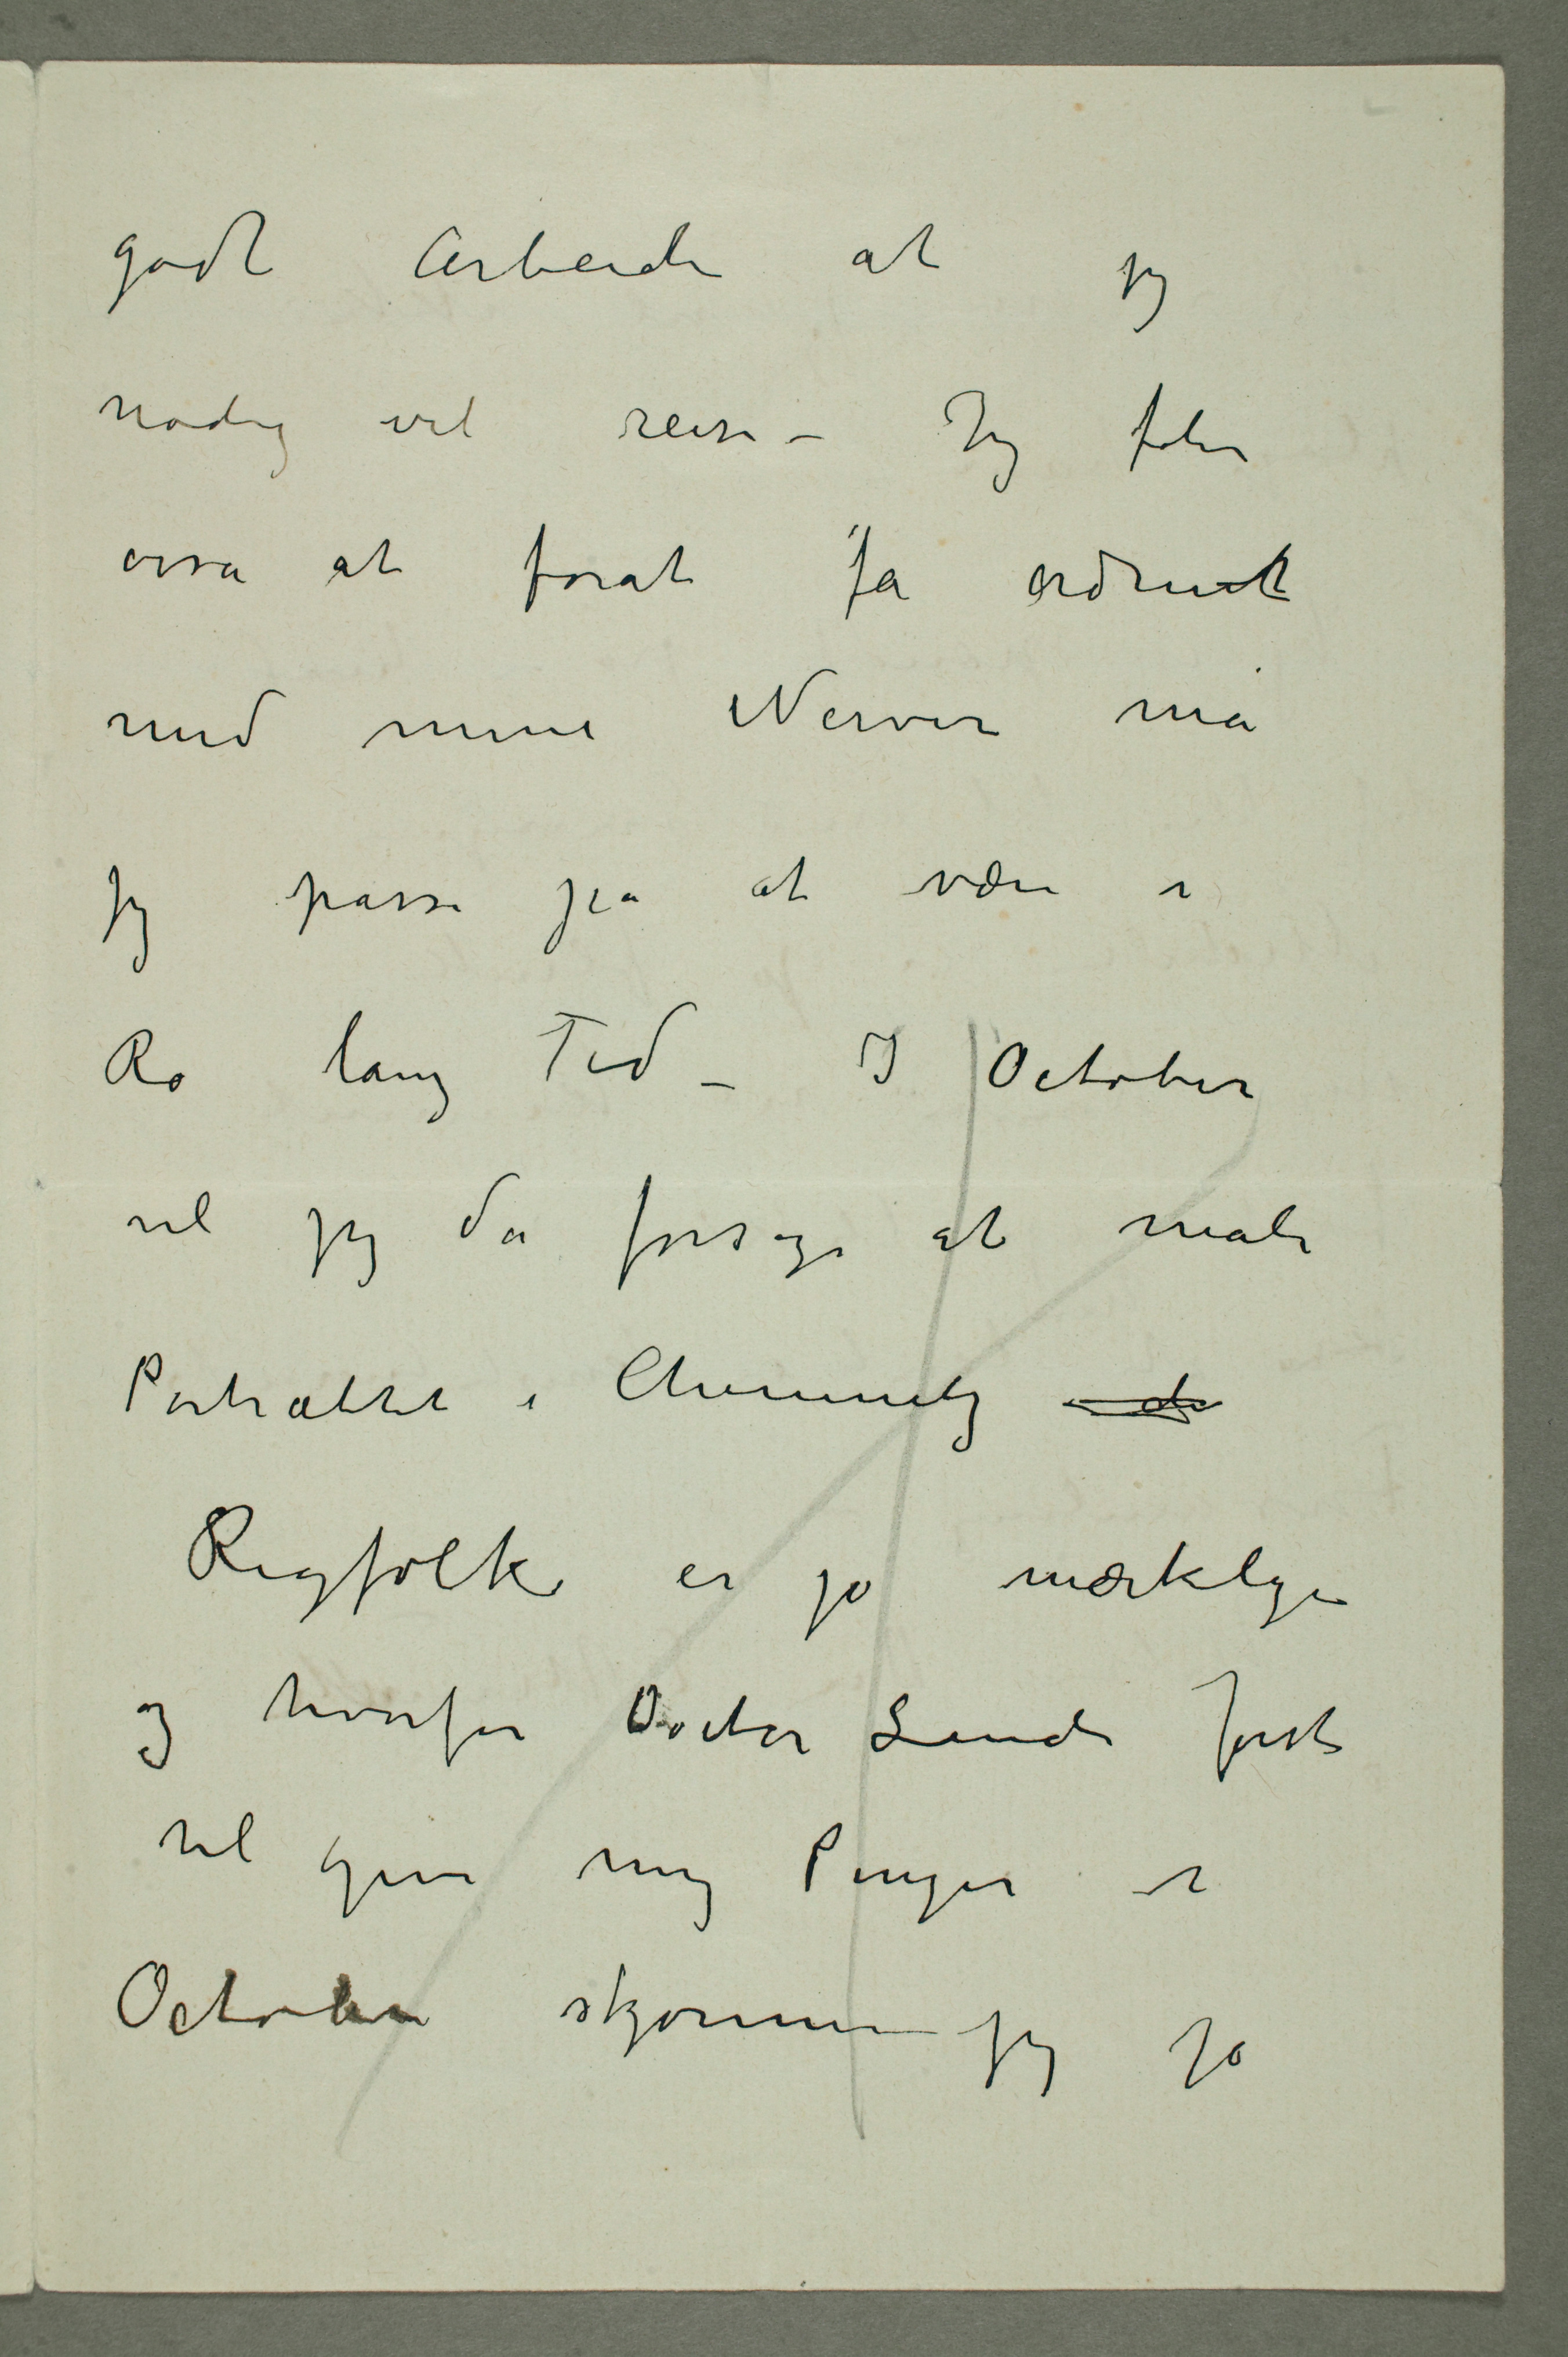 godt Arbeide at jeg
nødig vil reise – Jeg føler
ossa at forat få ordnet
med mine Nerver må
jeg passe på at være i
Ro lang Tid – I October
vil jeg da forsøge at male
Portrættet i Chemnitz
Rigfolk er jo mærkelige
og hvorfor Doctor Linde først
vil give mig Penger i
October skjønner jeg jo